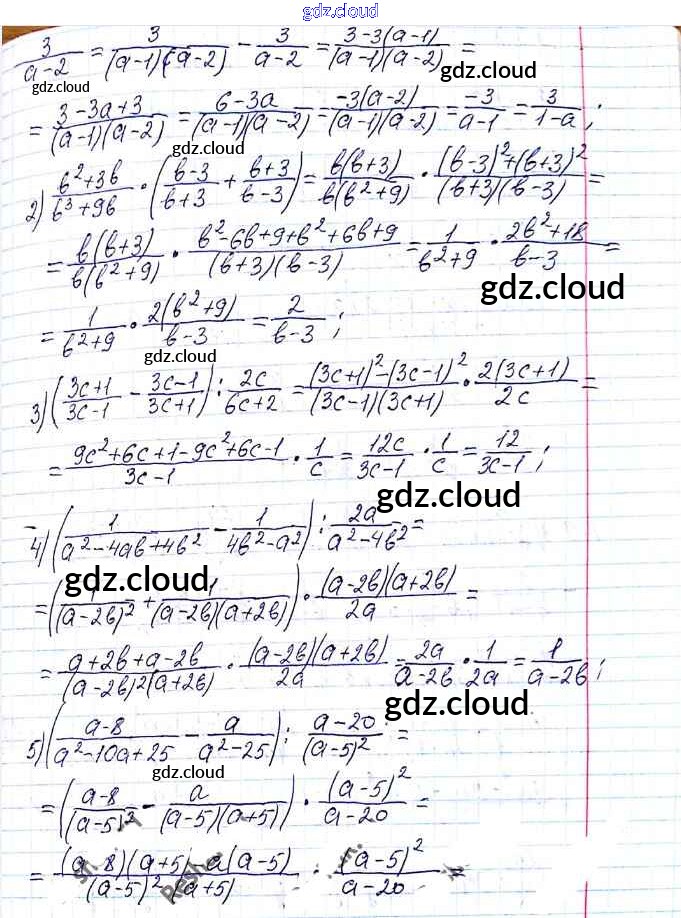 gdz.cloud
3/(a-2) = 3/((a-1)(a-2)) - 3/(a-2) = (3-3(a-1))/((a-1)(a-2)) =
gdz.cloud
gdz.cloud
= (3-3a+3)/((a-1)(a-2)) = (6-3a)/((a-1)(a-2)) = (-3(a-2))/((a-1)(a-2)) = (-3)/(a-1) = 3/(1-a);
gdz.cloud
2) (b²+3b)/(b³+9b) · ((b-3)/(b+3) + (b+3)/(b-3)) = (b(b+3))/(b(b²+9)) · ((b-3)²+(b+3)²)/((b+3)(b-3)) =
= (b(b+3))/(b(b²+9)) · (b²-6b+9+b²+6b+9)/((b+3)(b-3)) = 1/(b²+9) · (2b²+18)/(b-3) =
gdz.cloud
= 1/(b²+9) · (2(b²+9))/(b-3) = 2/(b-3);
gdz.cloud
3) ((3c+1)/(3c-1) - (3c-1)/(3c+1)) : 2c/(6c+2) = ((3c+1)²-(3c-1)²)/((3c-1)(3c+1)) · (2(3c+1))/(2c) =
= (9c²+6c+1-9c²+6c-1)/(3c-1) · 1/c = 12c/(3c-1) · 1/c = 12/(3c-1);
gdz.cloud
4) (1/(a²-4ab+4b²) - 1/(4b²-a²)) : 2a/(a²-4b²) =
gdz.cloud
= (1/(a-2b)² + 1/((a-2b)(a+2b))) · ((a-2b)(a+2b))/(2a) =
= (a+2b+a-2b)/((a-2b)²(a+2b)) · ((a-2b)(a+2b))/(2a) = 2a/(a-2b) · 1/(2a) = 1/(a-2b);
gdz.cloud
5) ((a-8)/(a²-10a+25) - a/(a²-25)) : (a-20)/(a-5)² =
gdz.cloud
= ((a-8)/(a-5)² - a/((a-5)(a+5))) · (a-5)²/(a-20) =
= ((a-8)(a+5)-a(a-5))/((a-5)²(a+5)) · (a-5)²/(a-20) =